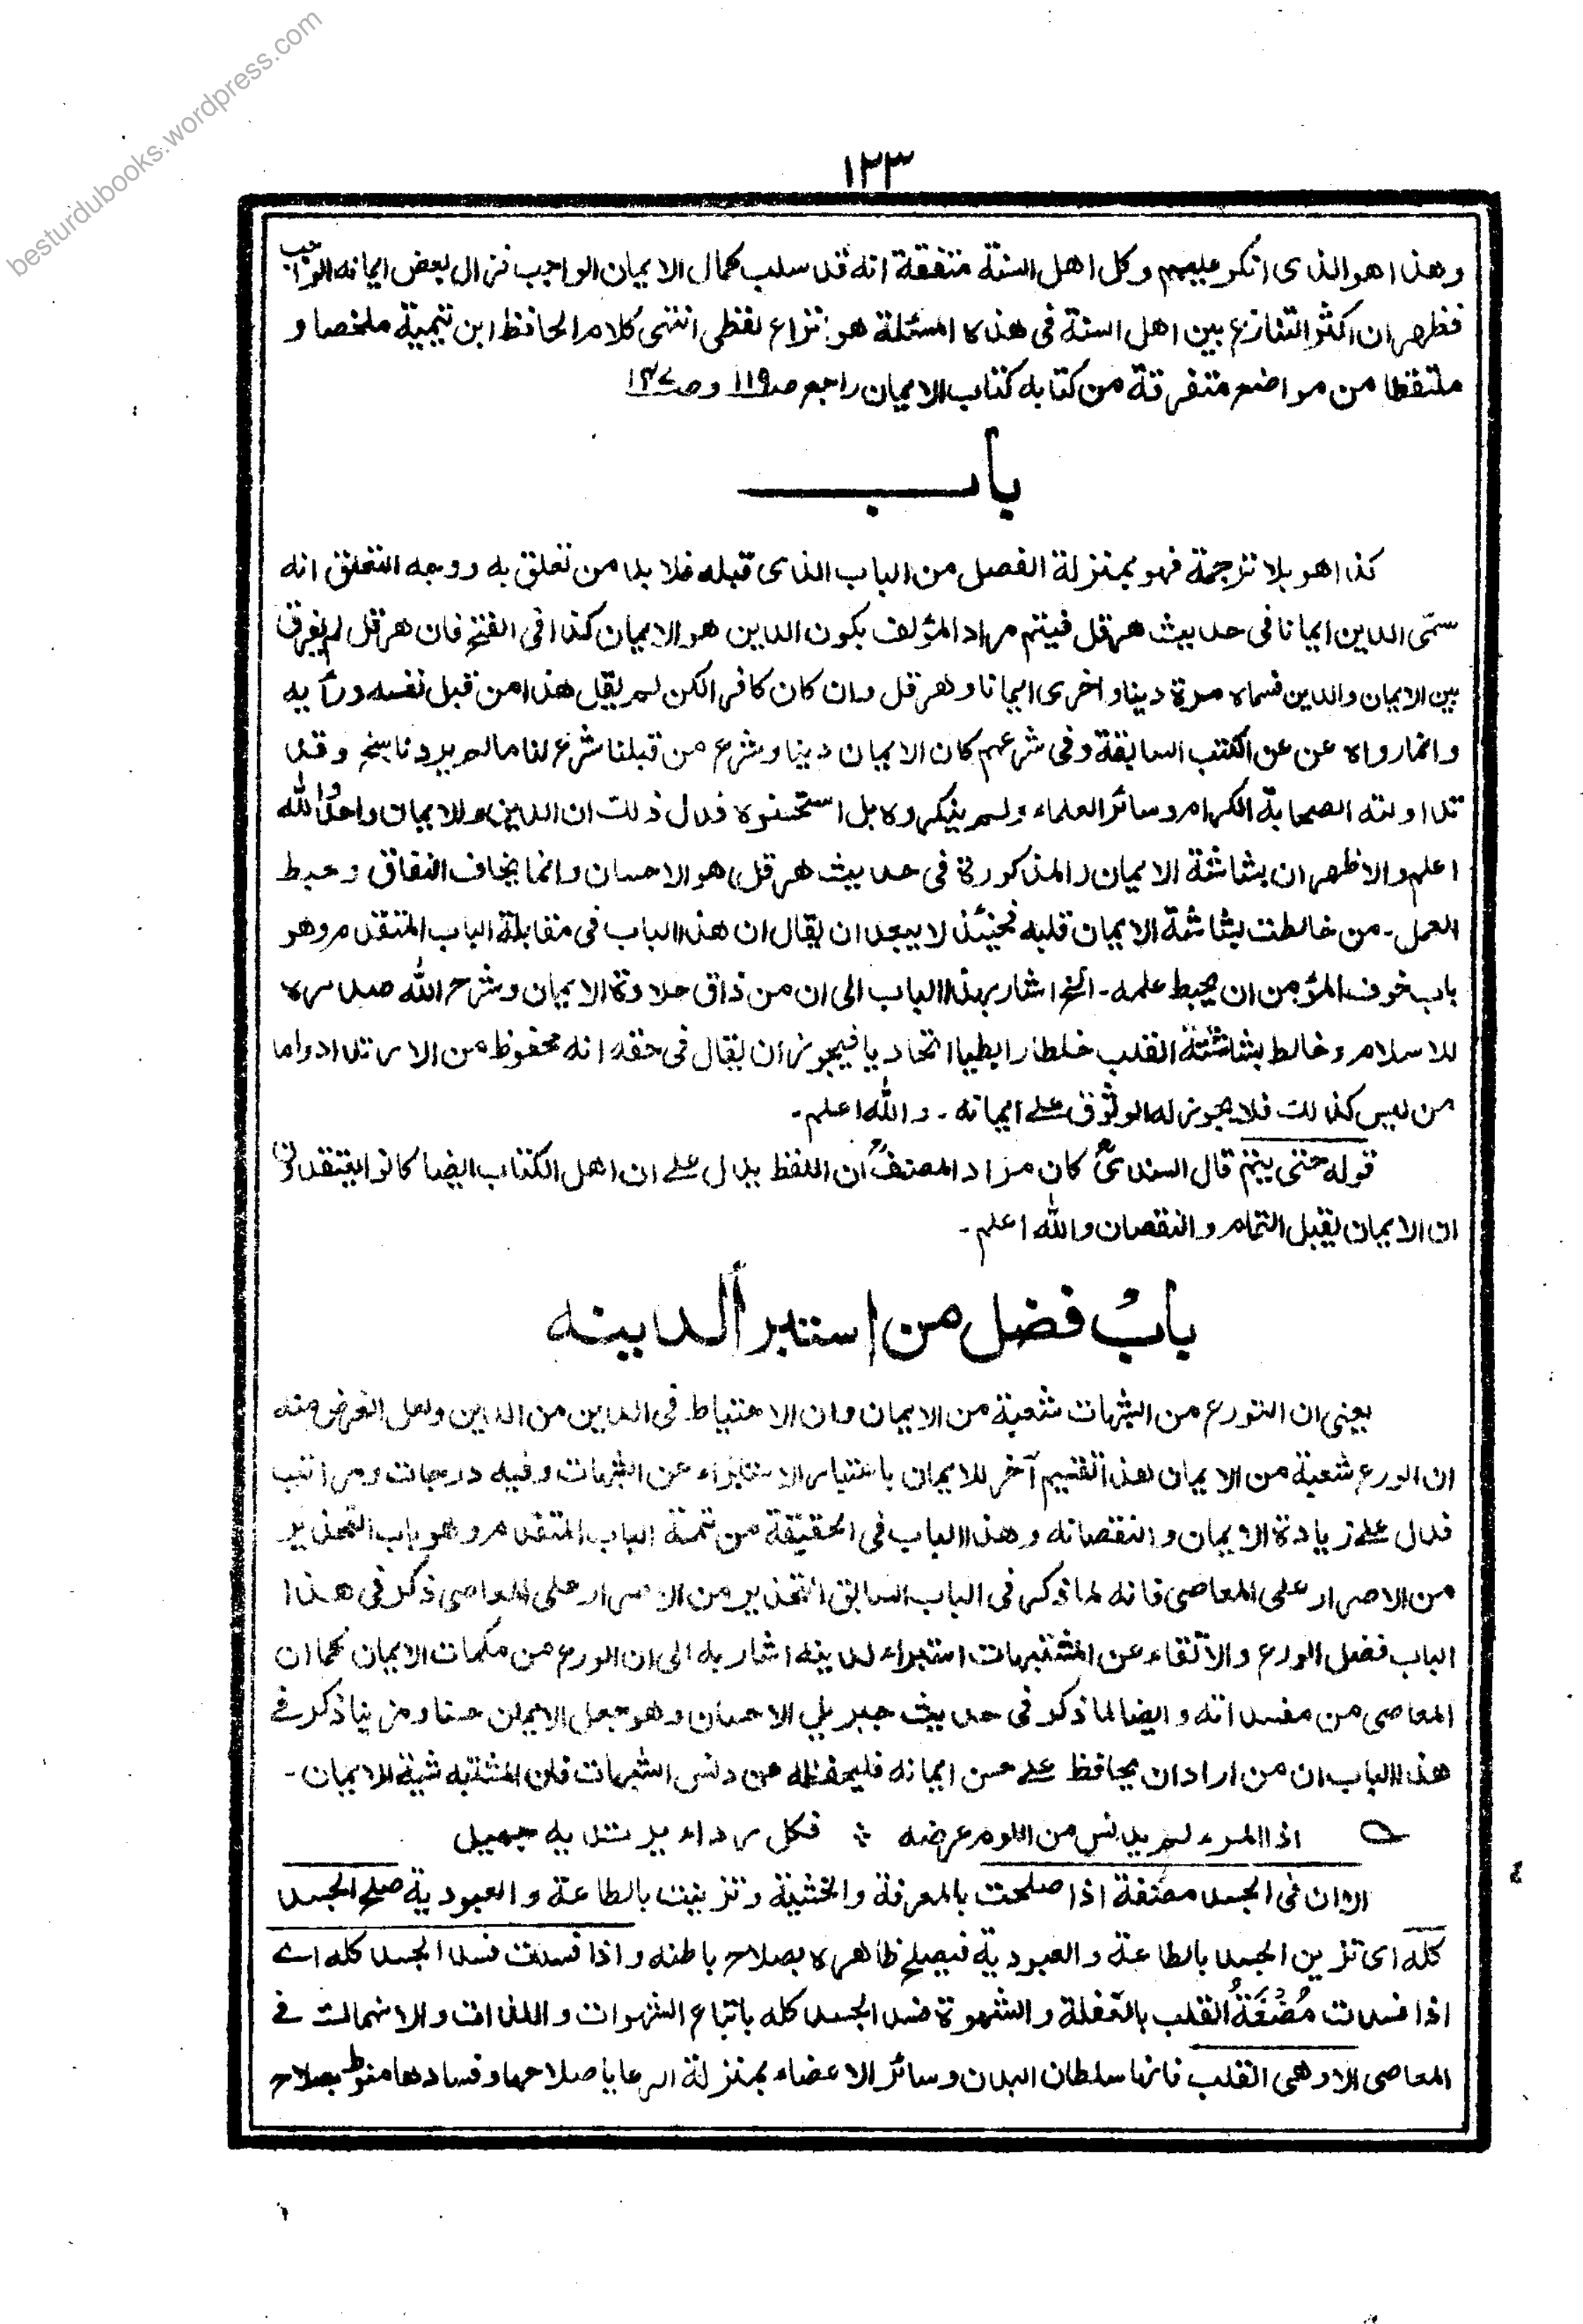 besturdubooks.wordpress.com
١٢٣
وهذا هو الذى انكر عليهم وكل اهل السنة متفقة انه قد سلب كمال الايمان الواجب فزال بعض ايمانه الواجب
فظهر ان اكثر التنازع بين اهل السنة فى هذه المسئلة هو نزاع لفظى انتهى كلام الحافظ ابن تيمية ملخصا و
ملتقطا من مواضع متفرقة من كتابه كتاب الايمان راجع صـ١١٩ وصـ١٣٧
باب
كذا هو بلا ترجمة فهو بمنزلة الفصل من الباب الذى قبله فلا بد من تعلق به ووجه التعلق انه
سمّى الدين ايمانا فى حديث هرقل فيتم مراد المؤلف بكون الدين هو الايمان كذا فى الفتح فان هرقل لم يفرق
بين الايمان والدين فسماه مرة دينا واخرى ايمانا وهرقل وان كان كافرا لكن لم يقل هذا من قبل نفسه ورأيه
وانما رواه عن عن الكتب السابقة وفى شرعهم كان الايمان دينا وشرع من قبلنا شرع لنا مالم يرد ناسخ وقد
تداولته الصحابة الكرام وسائر العلماء ولم ينكروه بل استحسنوه فدل ذلك ان الدين والايمان واحد والله
اعلم والاظهر ان بشاشة الايمان (المذكورة فى حديث هرقل) هو الاحسان وانما يخاف النفاق وحبط
العمل - من خالطت بشاشة الايمان قلبه فحينئذ لا يبعد ان يقال ان هذا الباب فى مقابلة الباب المتقدم وهو
باب خوف المؤمن ان يحبط عمله - الخ اشار بهذا الباب الى ان من ذاق حلاوة الايمان وشرح الله صدره
للاسلام وخالط بشاشته القلب خلطا رابطيا اتحاديا فيجوز ان يقال فى حقه انه محفوظ من الارتداد واما
من ليس كذالك فلا يجوز له الوثوق على ايمانه - والله اعلم -
قوله حتى يتم قال السندىؒ كان مراد المصنفؒ ان اللفظ يدل على ان اهل الكتاب ايضا كانوا يعتقدون
ان الايمان يقبل التمام والنقصان والله اعلم -
بابُ فضل من استبرأ لدينه
يعنى ان التورع من الشبهات شعبة من الايمان وان الاحتياط فى الدين من الدين ولعل الغرض منه
ان الورع شعبة من الايمان لهذا تقسيم آخر للايمان باعتبار الاستبراء عن الشبهات وفيه درجات ومراتب
فدل على زيادة الايمان والنقصانه وهذا الباب فى الحقيقة من تتمة الباب المتقدم وهو باب التحذير
من الاصرار على المعاصى فانه لما ذكر فى الباب السابق التحذير من الاصرار على المعاصى ذكر فى هذا
الباب فضل الورع والاتقاء عن المشتبهات استبراء لدينه اشار به الى ان الورع من مكملات الايمان كما ان
المعاصى من مفسداته وايضا لما ذكر فى حديث جبريل الاحسان وهو جعل الايمان حسنا ومزينا ذكر فى
هذا الباب ان من اراد ان يحافظ على حسن ايمانه فليحفظه عن دنس الشبهات فان المشتبه شية الايمان -
اذا المرء لم يدنس من اللوم عرضه ؞ فكل رداء يرتديه جميل
الا ان فى الجسد مضغة اذا صلحت بالمعرفة والخشية وتزينت بالطاعة والعبودية صلح الجسد
كله اى تزين الجسد بالطاعة والعبودية فيصلح ظاهره بصلاح باطنه واذا فسدت فسد الجسد كله اے
اذا فسدت مُضْغَةُ القلب بالغفلة والشهوة فسد الجسد كله باتباع الشهوات واللذات والانهماك فى
المعاصى الا وهى القلب فانها سلطان البدن وسائر الاعضاء بمنزلة الرعايا صلاحها وفسادها منوط بصلاح